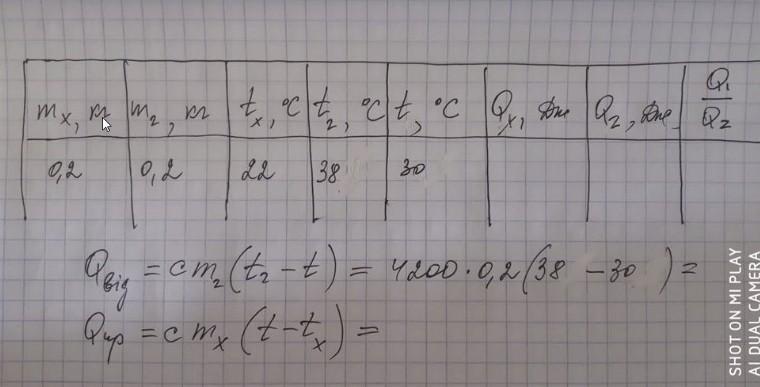 mₓ, кг m₂, кг tₓ, °C t₂, °C t, °C Qₓ, Дж Q₂, Дж Q₁/Q₂
0,2 0,2 22 38 30
Qвід = cm₂(t₂ - t) = 4200 · 0,2(38 - 30) =
Qпр = cmₓ(t - tₓ) =
SHOT ON MI PLAY
AI DUAL CAMERA